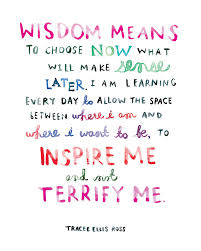 WISDOM MEANS
TO CHOOSE NOW WHAT
WILL MAKE sense
LATER. I AM LEARNING
EVERY DAY to ALLOW THE SPACE
BETWEEN where i am AND
where i want to be, TO
INSPIRE ME
and not
TERRIFY ME.
TRACEE ELLIS ROSS